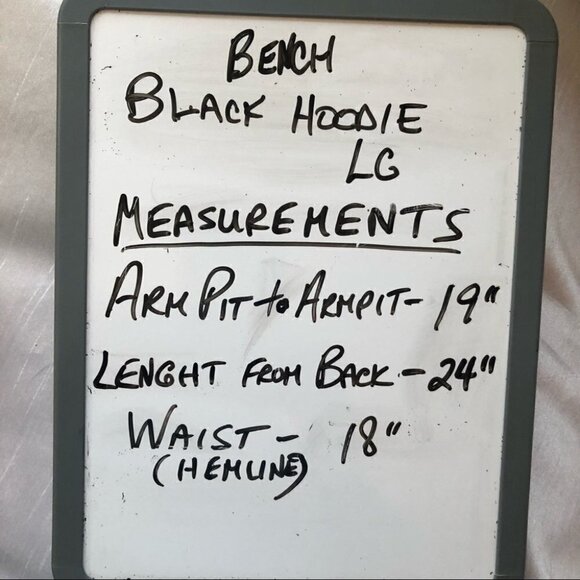 BENCH
BLACK HOODIE
LG
MEASUREMENTS
ARM PIT to ARMPIT- 19"
LENGHT FROM BACK - 24"
WAIST - 18"
(HEMLINE)